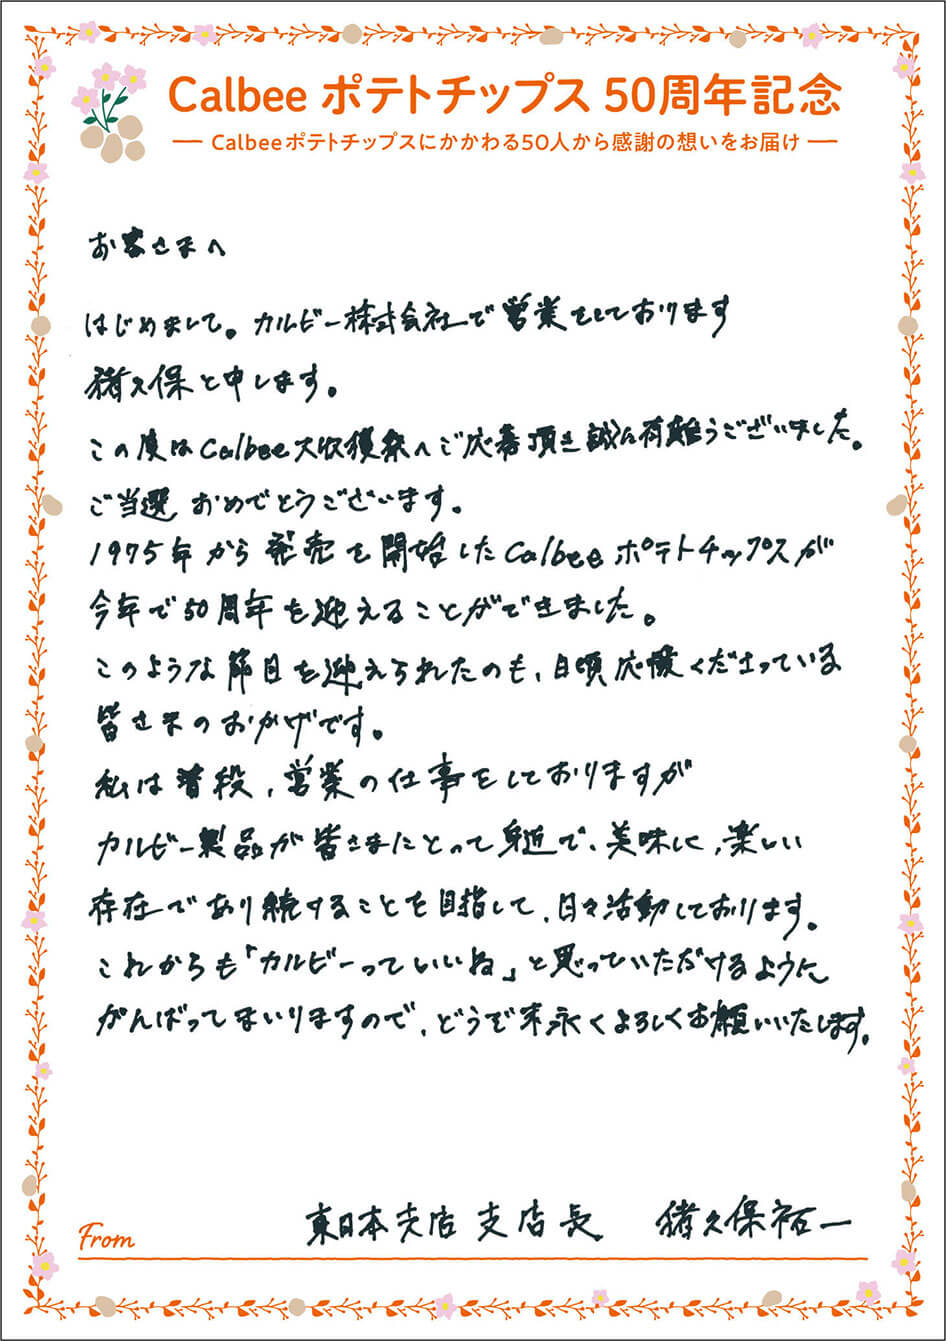 Calbee ポテトチップス 50周年記念
Calbeeポテトチップスにかかわる50人から感謝の想いをお届け
お客さまへ
はじめまして。カルビー株式会社で営業をしております
猪久保と申します。
この度はCalbee大収穫祭へご応募頂き誠に有難うございました。
ご当選おめでとうございます。
1975年から発売を開始したCalbeeポテトチップスが
今年で50周年を迎えることができました。
このような節目を迎えられたのも、日頃応援くださっている
皆さまのおかげです。
私は普段、営業の仕事をしておりますが
カルビー製品が皆さまにとって身近で、美味しく、楽しい
存在であり続けることを目指して、日々活動しております。
これからも「カルビーっていいね」と思っていただけるように
がんばってまいりますので、どうぞ末永くよろしくお願いいたします。
From 東日本支店 支店長 猪久保祐一